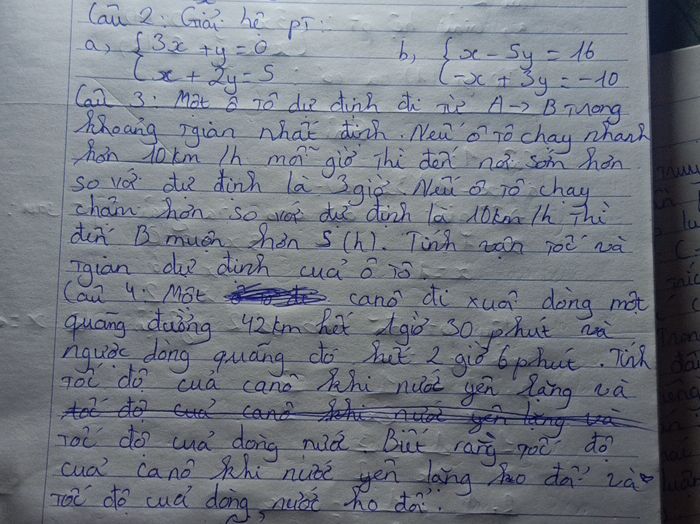 Câu 2: Giải hê pT:
a, { 3x + y = 0 b, { x - 5y = 16
{ x + 2y = 5 { -x + 3y = -10
Câu 3: Một ô tô dự định đi từ A → B trong
khoảng tgian nhất định. Nếu ô tô chạy nhanh
hơn 10km/h mỗi giờ thì đến nơi sớm hơn
so với dự định là 3 giờ. Nếu ô tô chạy
chậm hơn so với dự định là 10km/h thì
đến B muộn hơn 5 (h). Tính vận tốc và
tgian dự định của ô tô.
Câu 4: Một canô đi xuôi dòng một
quãng đường 42km hết 1giờ 30 phút và
ngược dòng quãng đó hết 2 giờ 6 phút. Tính
tốc độ của canô khi nước yên lặng và
tốc độ của dòng nước. Biết rằng tốc độ
của canô khi nước yên lặng ko đổi và
tốc độ của dòng nước ko đổi.